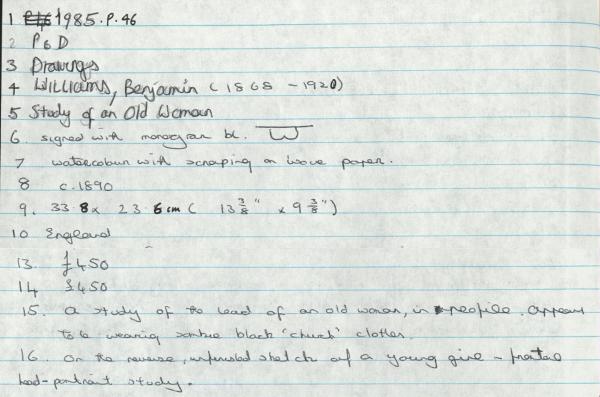 1 1985.P.46
2 P & D
3 Drawings
4 WILLIAMS, Benjamin (1868 - 1920)
5 Study of an Old Woman
6. signed with monogram bl. W
7 watercolour with scraping on wove paper.
8 c.1890
9. 33.8 x 23.6 cm ( 13 3/8" x 9 3/8")
10 England
13. £450
14 £450
15. a study of the head of an old woman, in profile. Appears
to be wearing sombre black 'church' clothes.
16. On the reverse, unfinished sketch of a young girl -
head-portrait study.